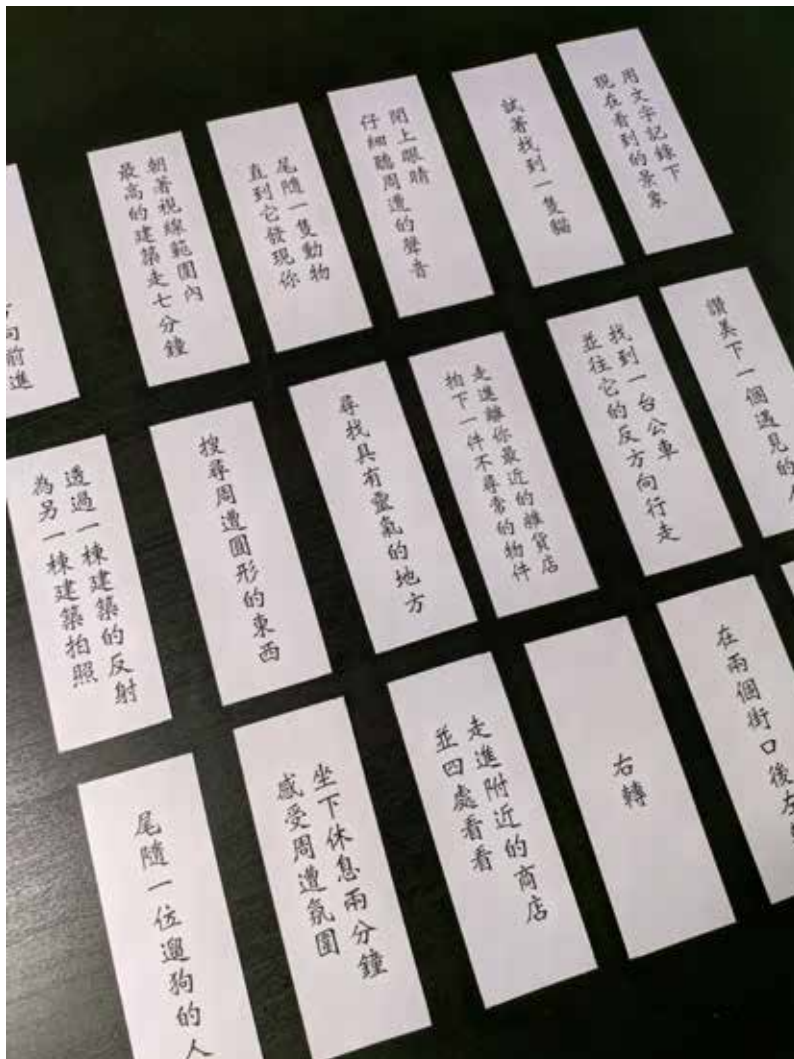 用文字記錄下
現在看到的景象
試著找到一隻貓
閉上眼睛
仔細聽周遭的聲音
尾隨一隻動物
直到它發現你
朝著視線範圍內
最高的建築走七分鐘
向前進
讚美下一個遇見的人
找到一台公車
並往它的反方向行走
走進離你最近的雜貨店
拍下一件不尋常的物件
尋找具有靈氣的地方
搜尋周遭圓形的東西
透過一棟建築的反射
為另一棟建築拍照
在兩個街口後左
右轉
走進附近的商店
並四處看看
坐下休息兩分鐘
感受周遭氛圍
尾隨一位遛狗的人